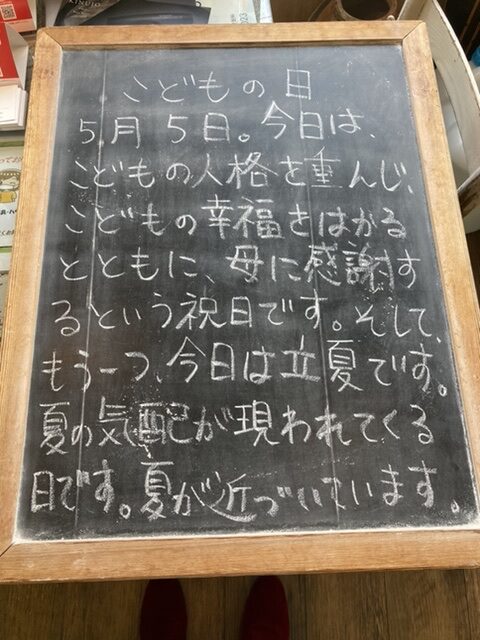 こどもの日
5月5日。今日は、
こどもの人格を重んじ、
こどもの幸福をはかる
とともに、母に感謝す
るという祝日です。そして、
もう一つ、今日は立夏です。
夏の気配が現われてくる
日です。夏が近づいています。